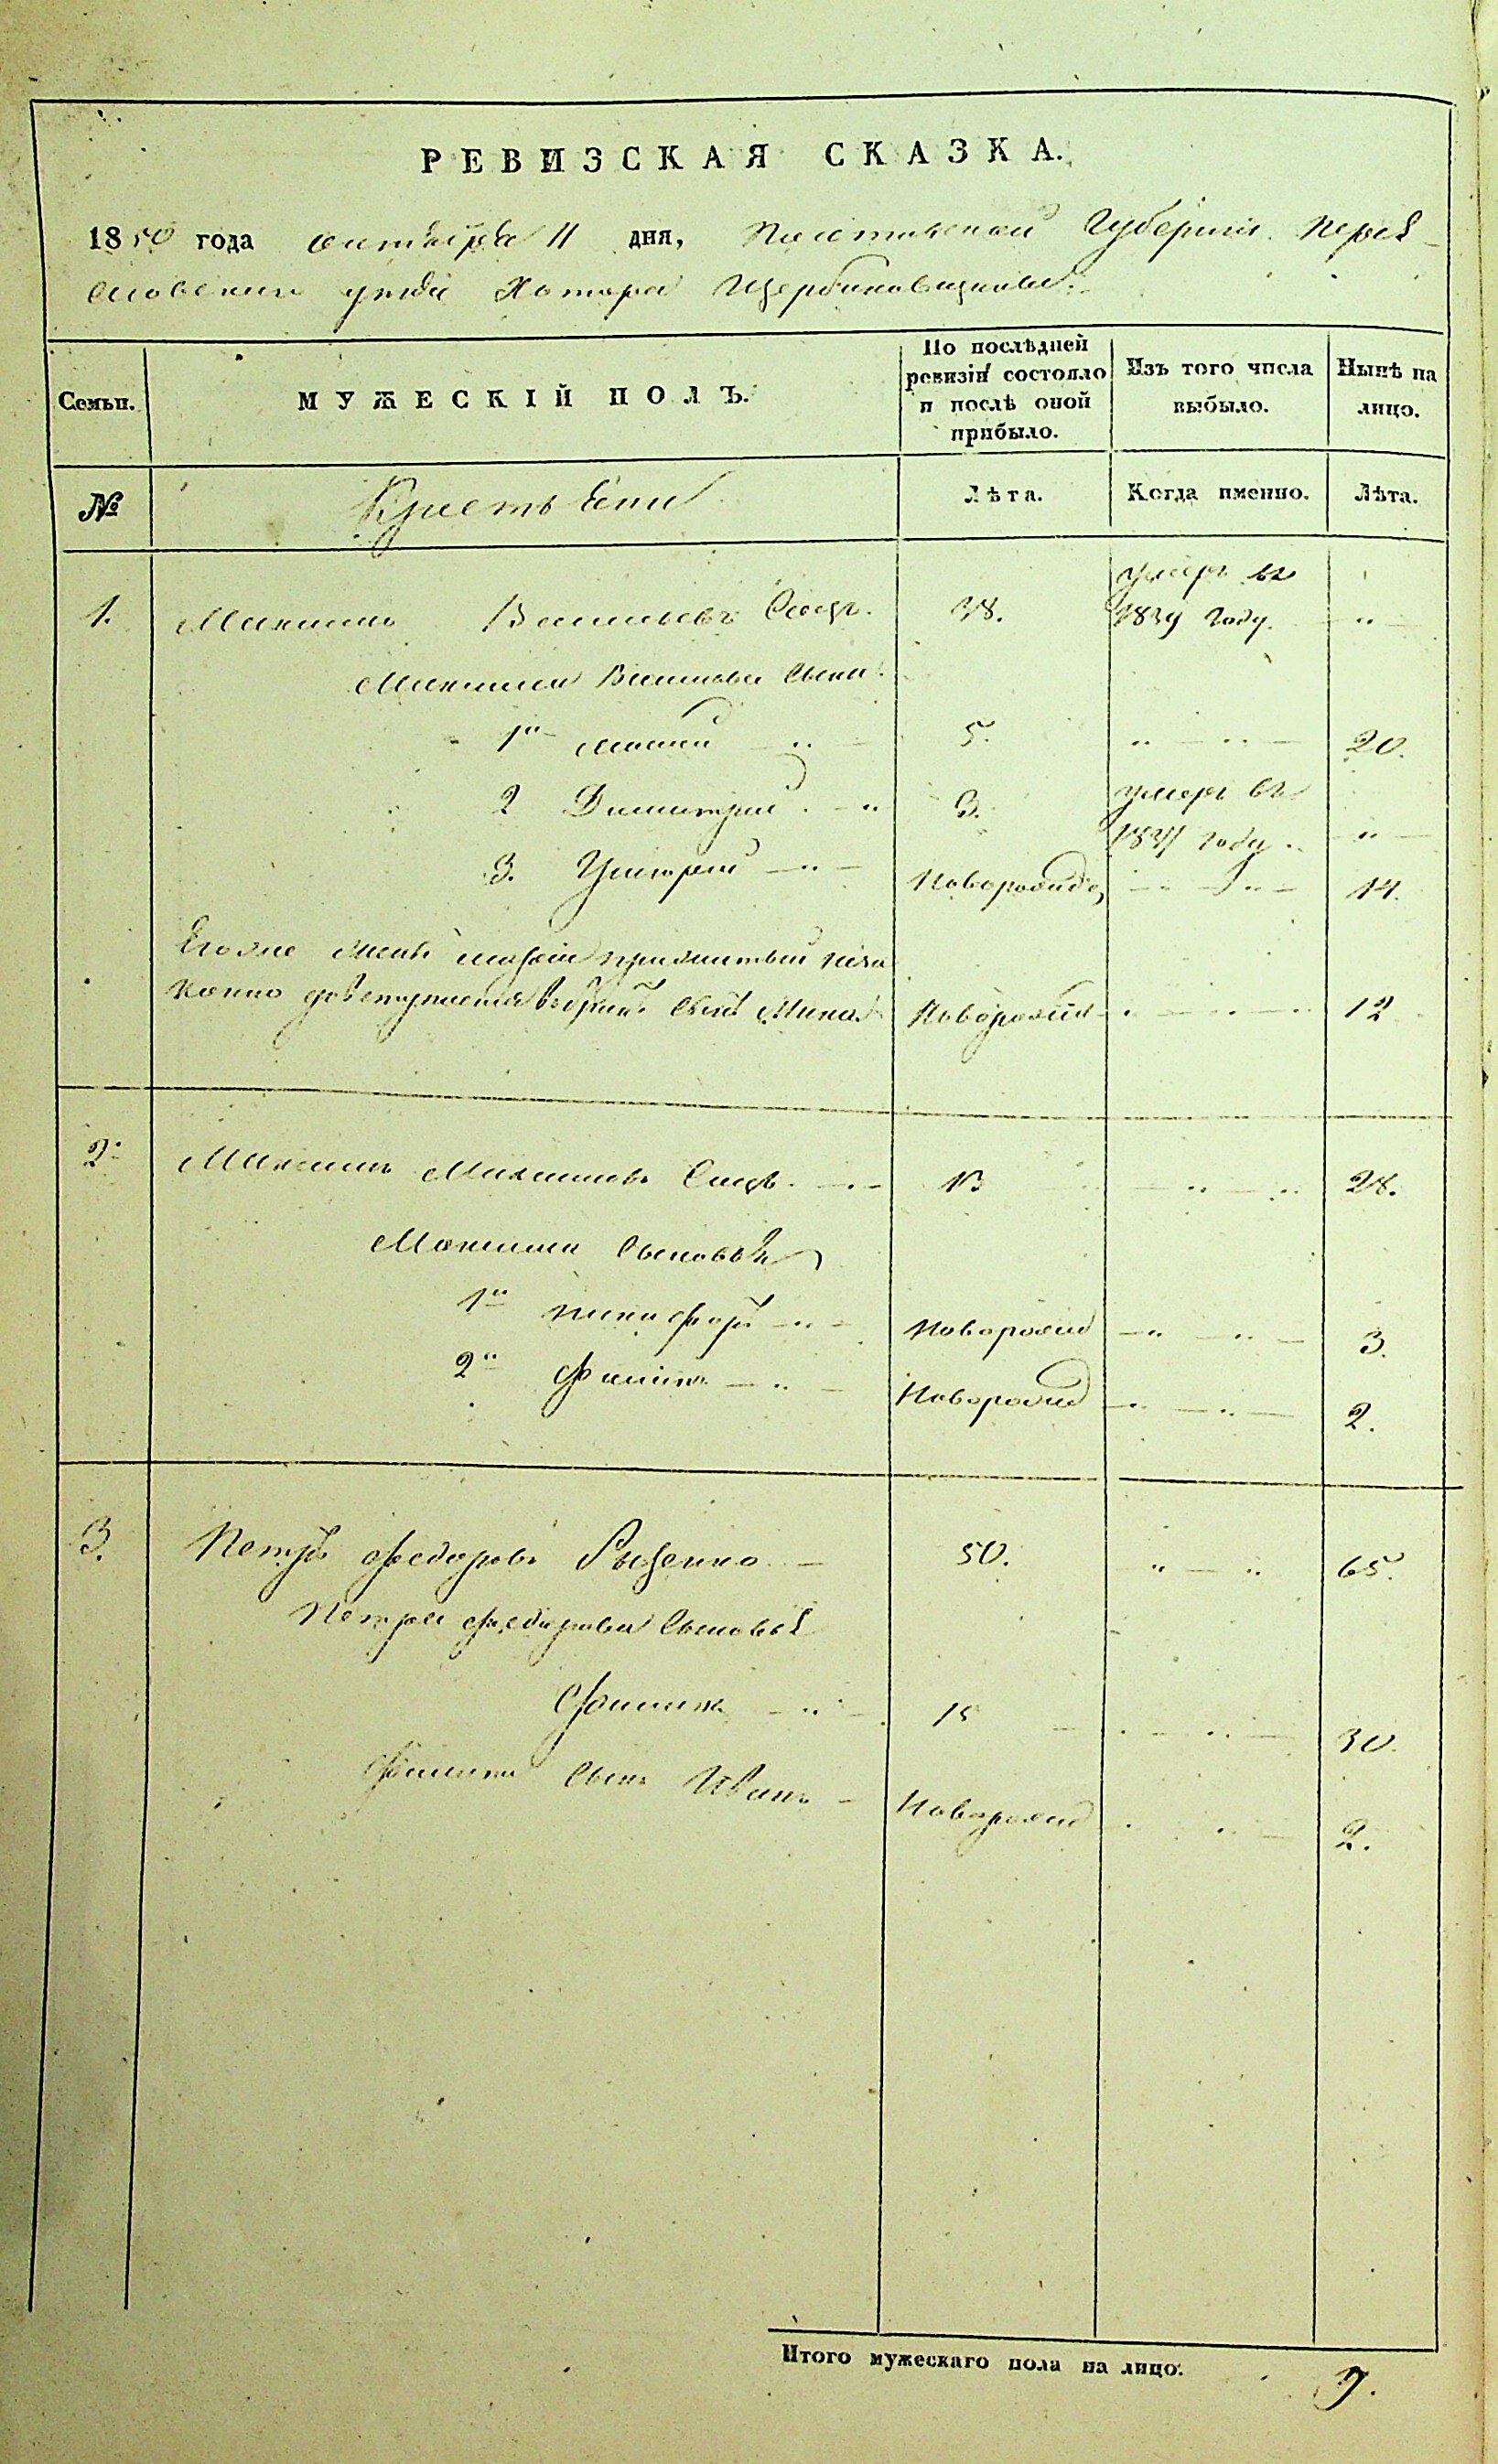 РЕВИЗСКАЯ СКАЗКА.
1850 года октября 11 дня, Полтавской Губернии. Перея-
словскаго уезда Хутора
Семьи.
МУЖЕСКІЙ ПОЛЪ.
По послѣдней ревизіи состояло и послѣ оной прибыло.
Изъ того числа выбыло.
Нынѣ на лицо.
№
Крестьяни
Лѣта.
Когда именно.
Лѣта.
1. Максимъ Васильевъ 38. умеръ въ
1839 году. "
Максима Васильева Сыны.
1й 5. " " 20.
2 Димитрій " 3. умеръ въ
году "
3. Григорій " Новорожде " 14.
Его же
Сынъ Новорожд " " 12
2. Максимъ Максимовъ " 13 " " 28.
Максима Сыновья
1й Никифоръ " Новорожд " " 3.
2й Филипъ " Новорожд " " 2.
3. Петръ Федоровъ 50. " " 65.
Петра Федорова Сыновья
Филипъ " 15 " 30.
Филипа Сынъ Иванъ Новорожд " 2.
Итого мужескаго пола на лицо. 9.